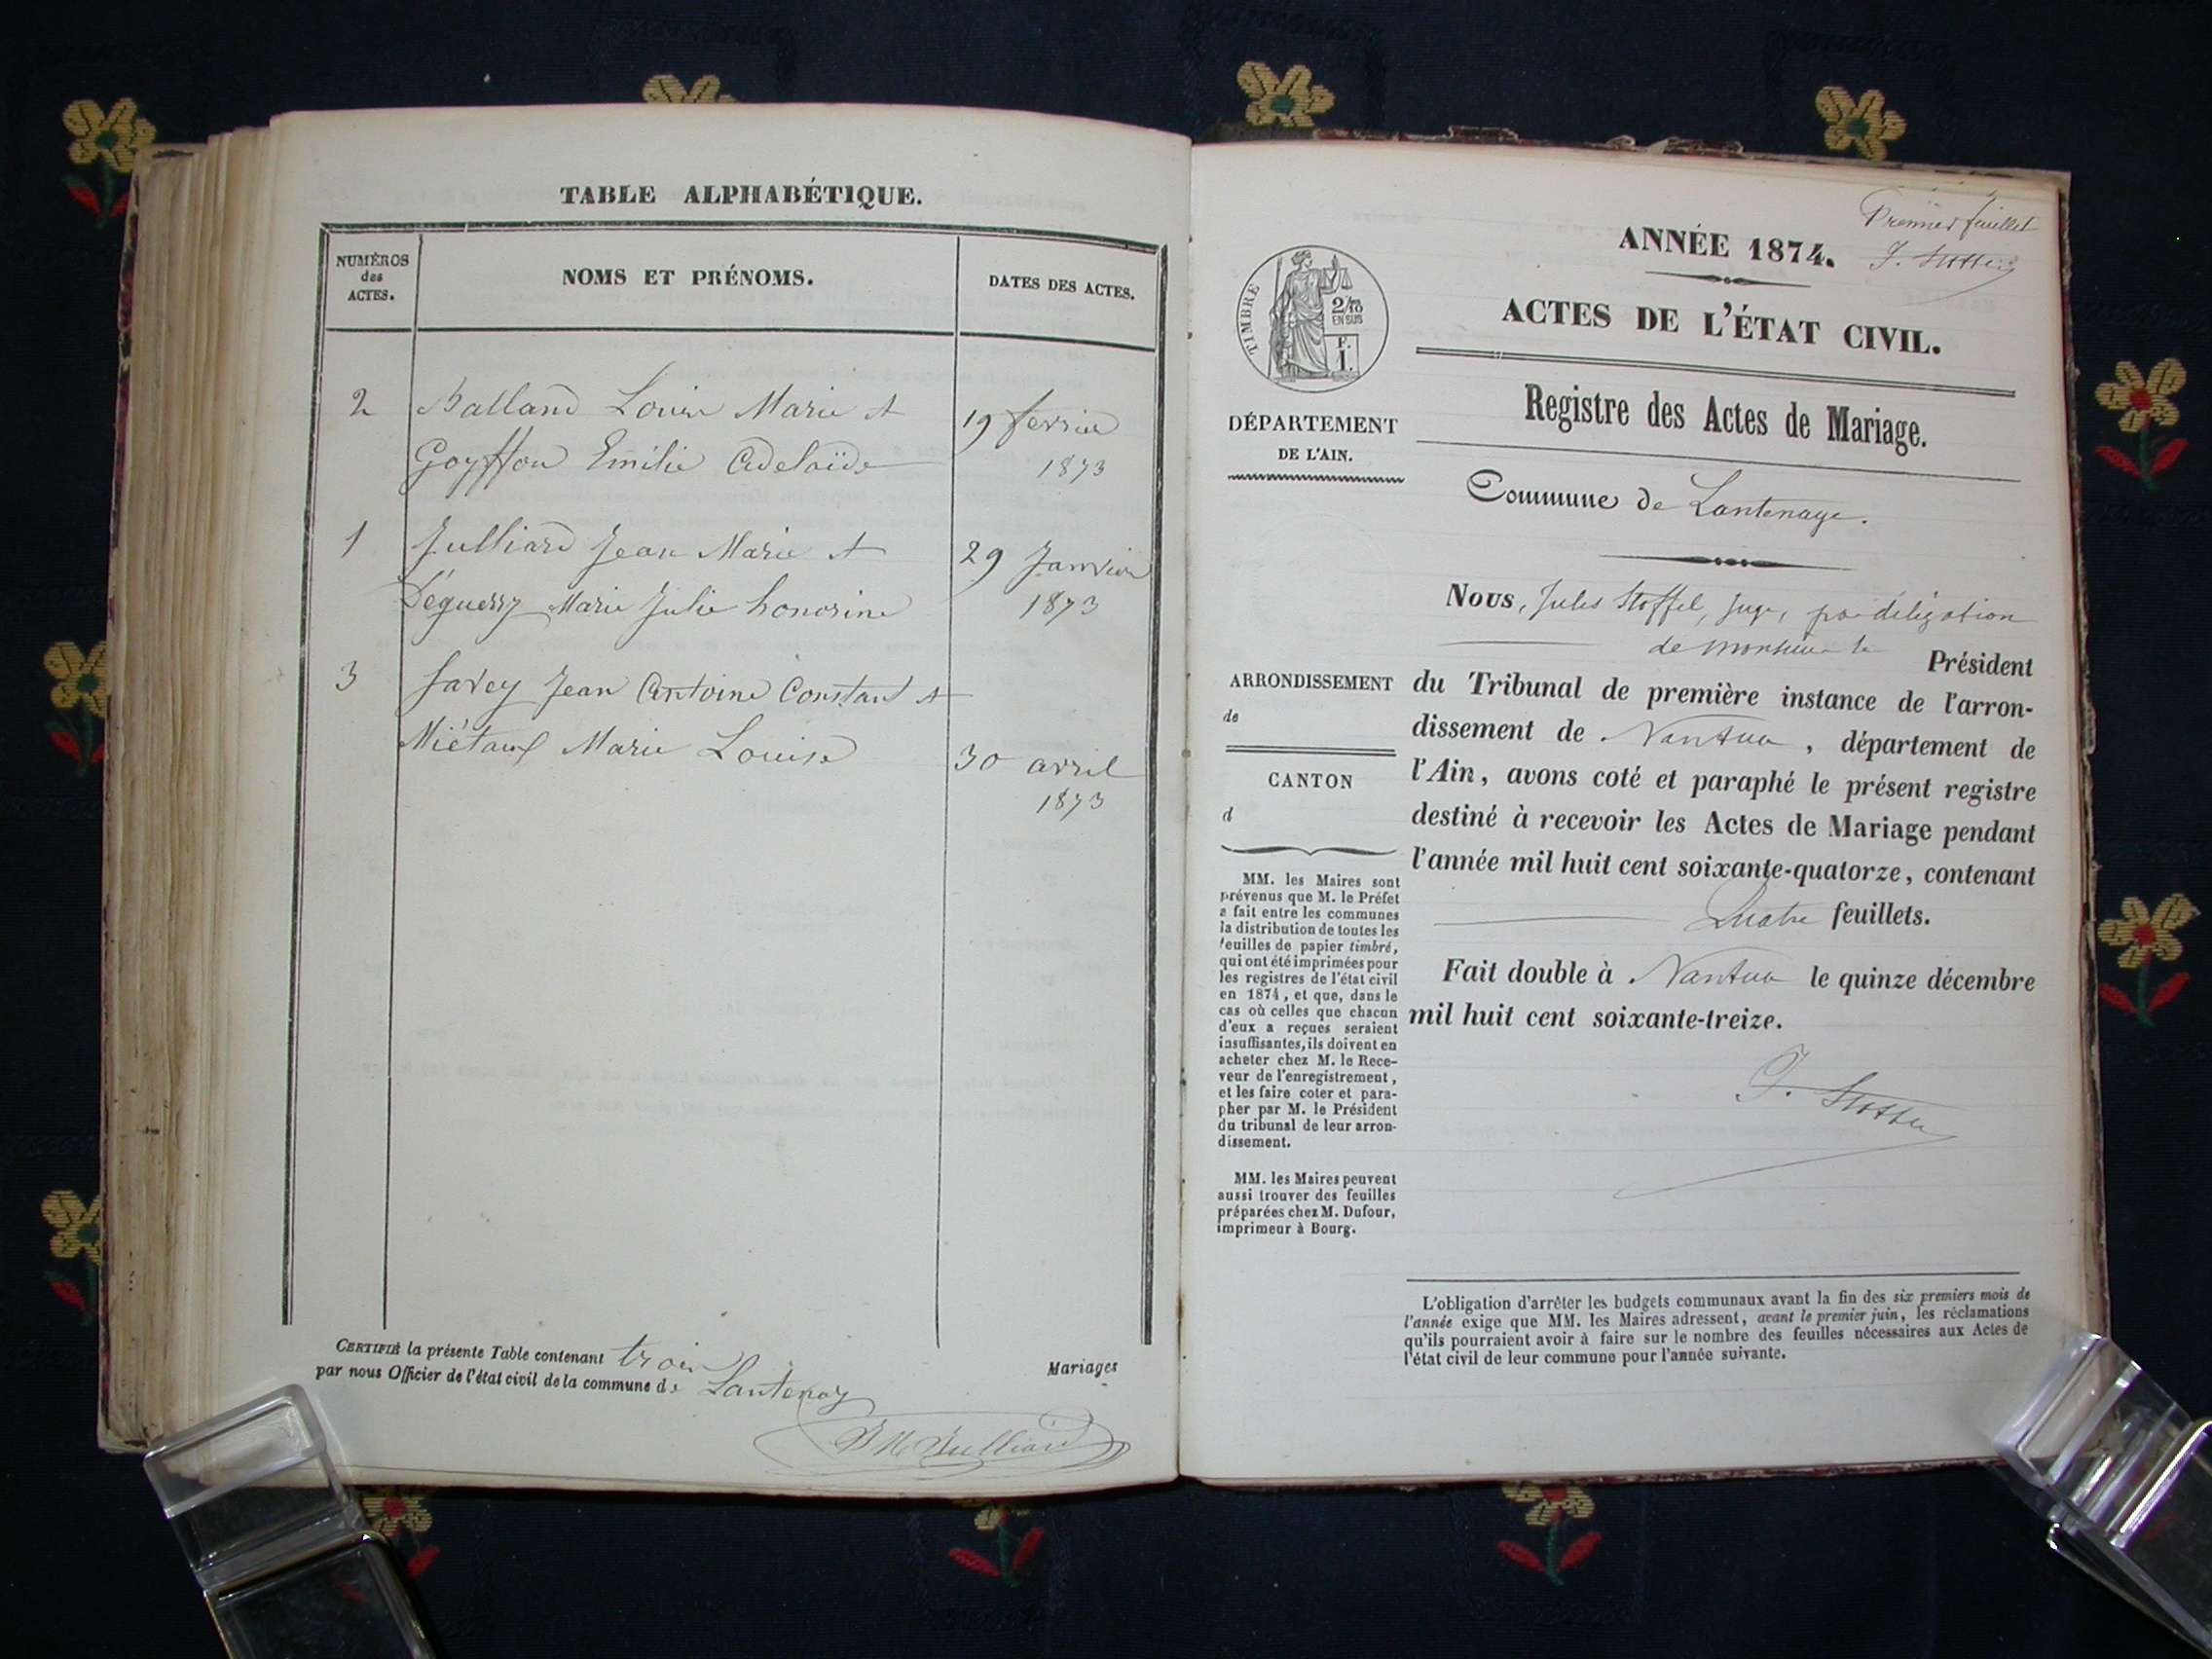 TABLE ALPHABÉTIQUE.
NUMÉROS
des
ACTES.
NOMS ET PRÉNOMS.
DATES DES ACTES.
2 Balland Louis Marie et 19 fevrier
Goyffon Emilie Adelaïde 1873
1 Julliard Jean Marie et 29 Janvier
Déguerry Marie Julie honorine 1873
3 Savey Jean Antoine Constant et
Miétaux Marie Louise 30 avril
1873
CERTIFIÉ la présente Table contenant trois Mariages
par nous Officier de l'état civil de la commune de Lantenay
Julliard
Premier feuillet
J. Stoffel
ANNÉE 1874.
ACTES DE L'ÉTAT CIVIL.
Registre des Actes de Mariage.
Commune de Lantenaye.
TIMBRE
2/10
EN SUS
F.
1.
DÉPARTEMENT
DE L'AIN.
ARRONDISSEMENT
de
CANTON
d
MM. les Maires sont
prévenus que M. le Préfet
a fait entre les communes
la distribution de toutes les
feuilles de papier timbré,
qui ont été imprimées pour
les registres de l'état civil
en 1874, et que, dans le
cas où celles que chacun
d'eux a reçues seraient
insuffisantes, ils doivent en
acheter chez M. le Rece-
veur de l'enregistrement,
et les faire coter et para-
pher par M. le Président
du tribunal de leur arron-
dissement.
MM. les Maires peuvent
aussi trouver des feuilles
préparées chez M. Dufour,
imprimeur à Bourg.
Nous, Jules Stoffel, juge, par délégation
de monsieur le Président
du Tribunal de première instance de l'arron-
dissement de Nantua, département de
l'Ain, avons coté et paraphé le présent registre
destiné à recevoir les Actes de Mariage pendant
l'année mil huit cent soixante-quatorze, contenant
Quatre feuillets.
Fait double à Nantua le quinze décembre
mil huit cent soixante-treize.
J. Stoffel
L'obligation d'arrêter les budgets communaux avant la fin des six premiers mois de
l'année exige que MM. les Maires adressent, avant le premier juin, les réclamations
qu'ils pourraient avoir à faire sur le nombre des feuilles nécessaires aux Actes de
l'état civil de leur commune pour l'année suivante.